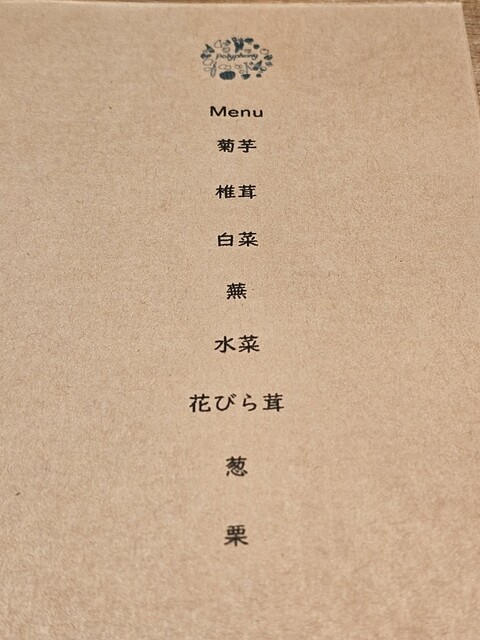 polyphony
Menu
菊芋
椎茸
白菜
蕪
水菜
花びら茸
葱
栗